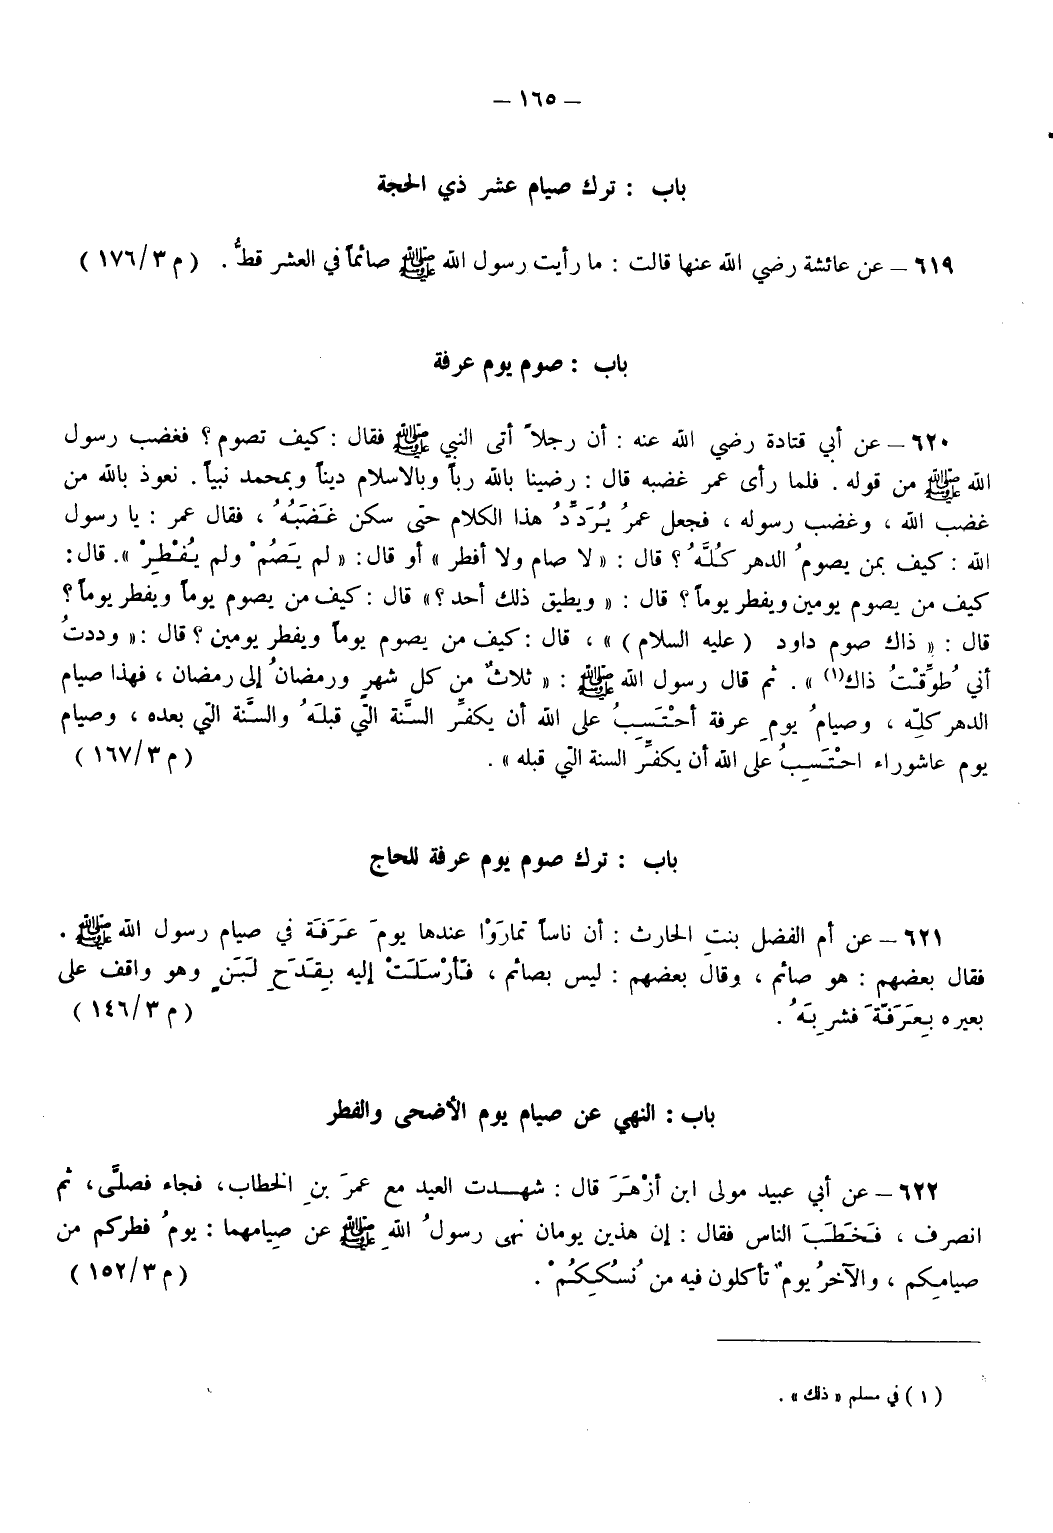 – ١٦٥ –
باب : ترك صيام عشر ذي الحجة
٦١٩ – عن عائشة رضي الله عنها قالت : ما رأيت رسول الله ﷺ صائماً في العشر قطُّ . ( م ١٧٦/٣ )
باب : صوم يوم عرفة
٦٢٠ – عن أبي قتادة رضي الله عنه : أن رجلاً أتى النبي ﷺ فقال : كيف تصوم ؟ فغضب رسول
الله ﷺ من قوله . فلما رأى عمر غضبه قال : رضينا بالله رباً وبالاسلام ديناً وبمحمد نبياً . نعوذ بالله من
غضب الله ، وغضب رسوله ، فجعل عمرُ يُرَدِّدُ هذا الكلام حتى سكن غَضَبُهُ ، فقال عمر : يا رسول
الله : كيف بمن يصومُ الدهر كُلَّهُ ؟ قال : « لا صام ولا أفطر » أو قال : « لم يَصُمْ ولم يُفْطِرْ » . قال :
كيف من يصوم يومين ويفطر يوماً ؟ قال : « ويطيق ذلك أحد ؟ » قال : كيف من يصوم يوماً ويفطر يوماً ؟
قال : « ذاك صوم داود ( عليه السلام ) » ، قال : كيف من يصوم يوماً ويفطر يومين ؟ قال : « وددتُ
أني ُطوِّقْتُ ذاك(١) » . ثم قال رسول الله ﷺ : « ثلاثٌ من كل شهرٍ ورمضانُ إلى رمضان ، فهذا صيام
الدهر كلِّه ، وصيامُ يومِ عرفة أحْتَسِبُ على الله أن يكفِّر السَّنة التي قبلَهُ والسَّنة التي بعده ، وصيام
يوم عاشوراء احْتَسِبُ على الله أن يكفِّر السنة التي قبله » . ( م ١٦٧/٣ )
باب : ترك صوم يوم عرفة للحاج
٦٢١ – عن أم الفضل بنتِ الحارث : أن ناساً تمارَوْا عندها يومَ عَرَفَة في صيام رسول الله ﷺ .
فقال بعضهم : هو صائم ، وقال بعضهم : ليس بصائم ، فَأرْسَلَتْ إليه بِقَدَحِ لَبَنٍ وهو واقف على
بعيره بِعَرَفَةَ فشرِبَهُ . ( م ١٤٦/٣ )
باب : النهي عن صيام يوم الأضحى والفطر
٦٢٢ – عن أبي عبيد مولى ابن أزْهَرَ قال : شهدت العيد مع عمرَ بنِ الخطاب ، فجاء فصلَّى ، ثم
انصرف ، فَخَطَبَ الناس فقال : إن هذين يومان نهى رسولُ اللهِ ﷺ عن صِيامهما : يومُ فطركم من
صيامِكم ، والآخرُ يومٌ تأكلون فيه من نُسُكِكُمْ . ( م ١٥٢/٣ )
( ١ ) في مسلم « ذلك » .